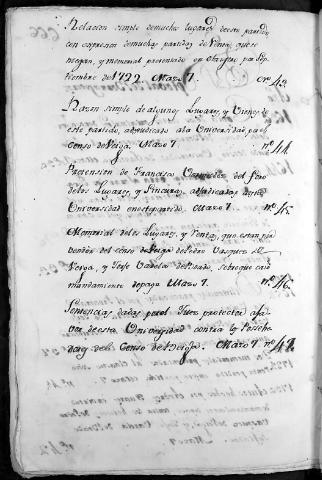 Relacion simple de muchos lugares de este partido,
con expresion de muchas partidas de Venta, que se
niegan, y memorial presentado en obsequio por Sep-
tiembre de 1722. Mazo 7. nº 43.
Razon simple de algunos Lugares, y Vienes de
este partido, adjudicados a la Universidad por el
Censo de Veiga. Mazo 7. nº 44.
Pretension de Francisco Vazquez del foro
de los Lugares, y Sincuras adjudicados a esta
Universidad en este partido. Mazo 7. nº 45.
Memorial de los Lugares, y Renta, que estan
del censo de Pedro Vazquez de
Veiga, y Josefe Varela de Prado, sobre que cayó
mandamiento de pago Mazo 7. nº 46.
Sentencias dadas por el Juez protector a fa-
vor de esta Universidad contra los Possehe-
dores del Censo de Veiga. Mazo 7. nº 47.